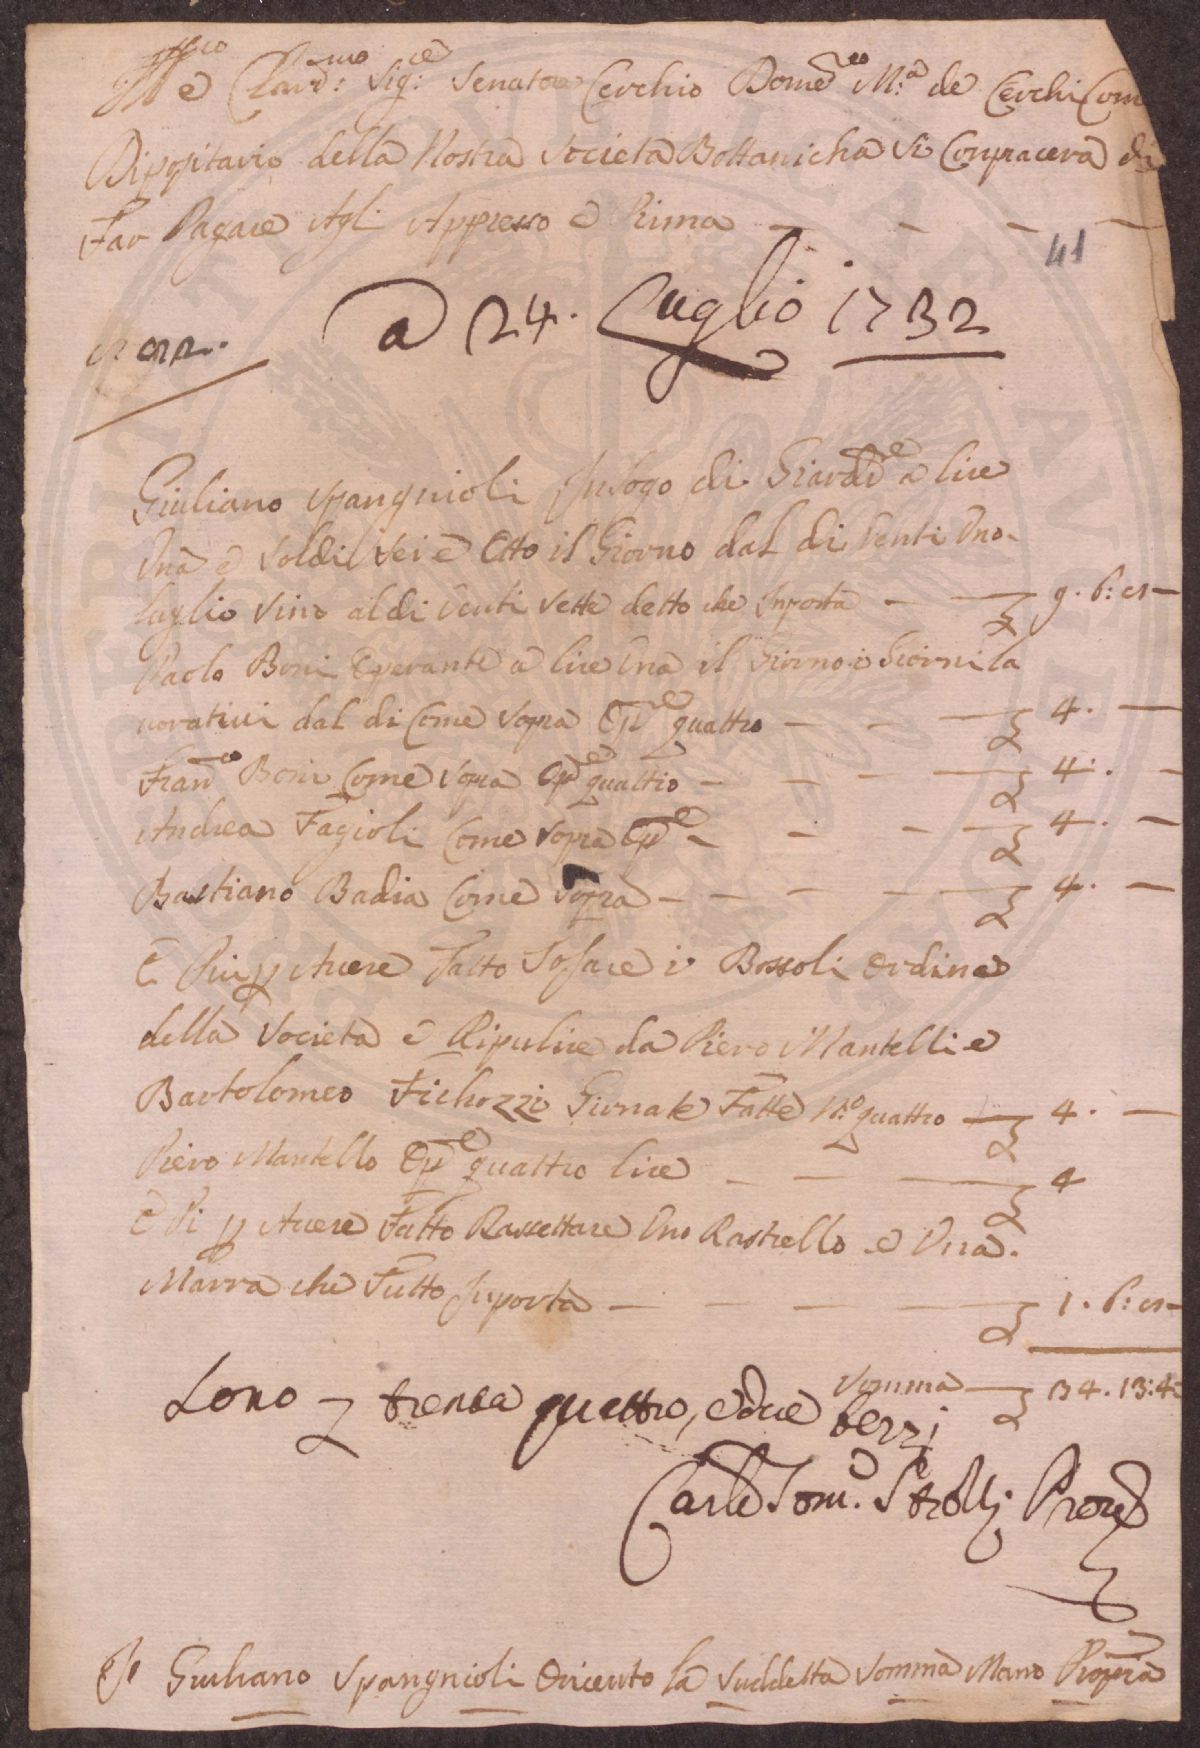 Ill.mo e Clariss.mo Sig.re Senatore Cerchio Dome.co M.a de Cerchi Com
Dipositario della Nostra Societa Bottanicha si Conpiacera di
Far Pagare Agli Appresso e Prima
41
a 24. Luglio 1732
Giuliano Spangnioli Inlogo di Giard.e a lire
Una e Soldi Sei e Otto il Giorno dal di Venti Uno
luglio Sino al di Venti Sette detto che Inporta 9. 6: 8
Paolo Boni Operante a lire Una il Giorno i Giorni la
vorativi dal di Come Sopra Op.e quattro 4.
Fran.co Boni Come Sopra Op.e quattro 4.
Andrea Fagioli Come Sopra Op.e 4.
Bastiano Badia Come Sopra 4.
E Piu p Avere Fatto Tosare i Bossoli Ordine
della Societa e Ripulire da Piero Mantelli e
Bartolomeo Fichozzi Giornate Fatte N.o quattro 4.
Piero Mantello Op.e quattro lire 4
E Pi p Avere Fatto Rassettare Uno Rastrello e Una
Marra che Tutto Inporta 1. 6: 8
Somma 34. 13: 4
Sono trenta quattro, e due terzi
Carlo Tom.o Strozzi Prov.e
Io Giuliano Spangnioli O ricevto la Suddetta Somma Mano Propria